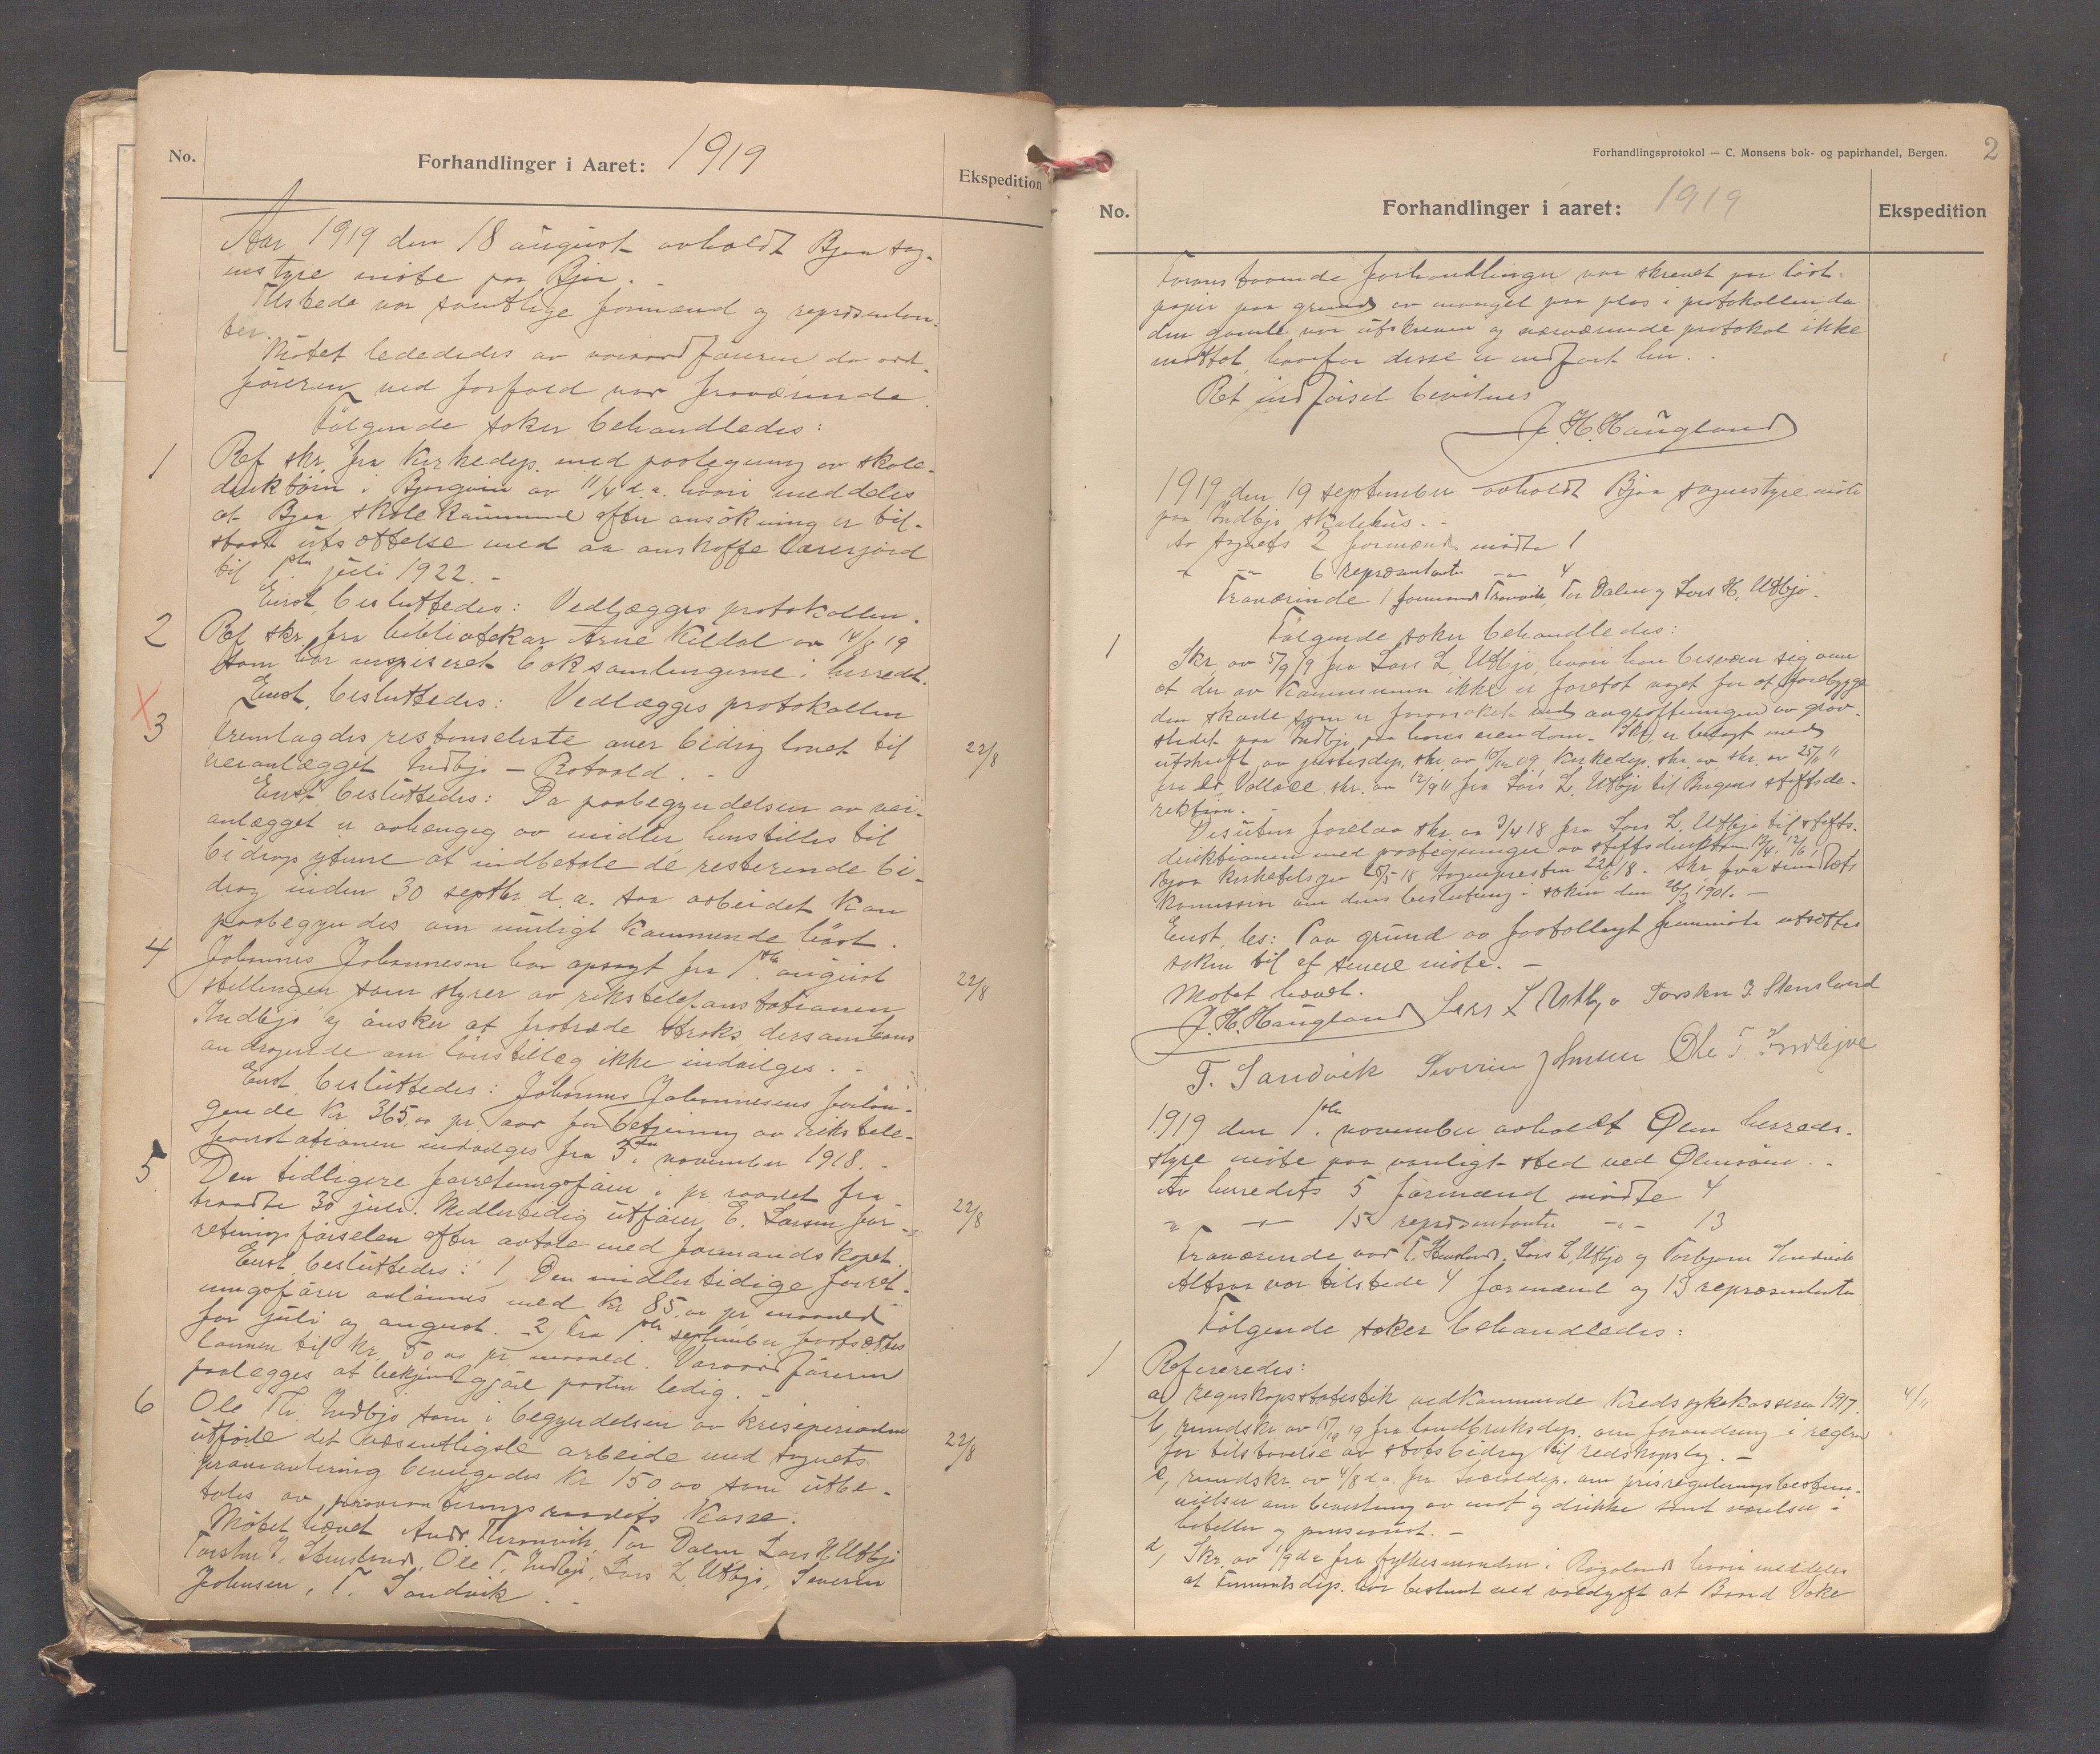 No.
Forhandlinger i Aaret: 1919
Ekspedition
Aar 1919 den 18 august avholdt Bjoa sog-
nestyre møte paa Bjoa.
Tilstede var samtlige formænd og repræsentan-
ter.
Møtet lededes av varaordføreren da ord-
føreren ved forfald var fraværende.
Følgende saker behandledes:
1 Ref skr. fra Kirkedep. med paategning av skole-
direktøren i Bjørgvin av 11/4 d.a. hvori meddeles
at Bjoa skolekommune efter ansøkning er til-
staat utsættelse med aa anskaffe lærerjord
til 1ste juli 1922. -
Enst. besluttedes: Vedlægges protokollen.
2 Ref skr. fra bibliotekar Arne Kildal av 14/8 19
som har inspiseret boksamlingerne i herredet.
Enst. besluttedes: Vedlægges protokollen
X
3 Fremlagdes restanseliste over bidrag lovet til
veianlægget Indbjo - Rotvold. -
22/8
Enst. besluttedes: Da paabegyndelsen av vei-
anlægget er avhængig av midler, henstilles til
bidragsyterne at indbetale de resterende bi-
drag inden 30 septbr. d.a. saa arbeidet kan
paabegyndes om muligt kommende høst.
4 Johannes Johannesen har opsagt fra 1ste august
stillingen som styrer av rikstelefonstationen
22/8
"Indbjo" og ønsker at fratræde straks, dersom hans
andragende om lønstillæg ikke indvilges. -
Enst. besluttedes: Johannes Johannesens forlan-
gende kr 365.00 pr. aar for betjening av rikstele-
fonstationen indvilges fra 3die november 1918. -
5 Den tidligere forretningsfører i pr. raadet fra-
traadte 30 juli. Midlertidig utfører E. Larsen for-
22/8
retningsførselen efter avtale med formandskapet.
Enst. besluttedes: 1, Den midlertidige forret-
ningsfører avlønnes med kr 85.00 pr maaned
for juli og august. 2, Fra 1ste september fastsættes
lønnen til kr. 50.00 pr. maaned. Varaordføreren
paalegges at bekjendtgjøre posten ledig. -
6 Ole Th. Indbjo som i begyndelsen av kriseperioden
utførte det væsentligste arbeide med sognets
22/8
proviantering bevilgedes kr 150.00 som utbe-
tales av provianteringsraadets kasse.
Møtet hævet Andr. Thronvik, Tor Dalen Lars H Utbjo
Torsten J. Stensland, Ole T. Indbjo, Lars L. Utbjo, Severin
Johnsen, T. Sandvik. -
Forhandlingsprotokol — C. Monsens bok- og papirhandel, Bergen.
2
No.
Forhandlinger i aaret: 1919
Ekspedition
Foranstaaende forhandlinger var skrevet paa løst
papir paa grund av mangel paa plas i protokollen da
den gamle var utskreven og nærværende protokol ikke
mottat, hvorfor disse er indført her. -
Ret indførsel bevitnes
J. H. Haugland
1919 den 19 september avholdt Bjoa sognestyre møte
paa Indbjo skolehus. -
Av sognets 2 formænd møtte 1
" -"- 6 repræsentanter -"- 4
Fraværende 1 formand Tronvik, Tor Dalen og Lars H. Utbjo.
Følgende saker behandledes:
1 Skr. av 5/9 19 fra Lars L. Utbjo, hvori han besværer sig over
at der av kommunen ikke er foretat noget for at forebygge
den skade som er foraarsaket ved angrøftningen av grav-
stedet paa Indbjo, paa hans eiendom. Skr. er belagt med
utskrift av justisdep. skr. av 10/12 09, Kirkedep. skr. av skr. av 25/11 11
fra dr. Vallace skr. av 12/9 11 fra Lars L. Utbjo til Bergens stiftsdi-
rektion. -
Desuten forelaa skr. av 3/4 18 fra Lars L. Utbjo til stifts-
direktionen med paategninger av stiftsdirektion 13/4, 12/6,
Bjoa kirketilsyn 28/5 18 sognepresten 22/6 18. Skr. fra sundhets
komission om dens beslutning i saken den 26/3 1901. -
Enst. bes: Paa grund av faatalligt fremmøte utsættes
saken til et senere møte. -
Møtet hævet.
J. H. Haugland Lars L Utbjo Torsten J. Stensland
T. Sandvik Severin Johnsen Ole T. Indbjoe
1919 den 1ste november avholdt Ølen herreds-
styre møte paa vanligt sted ved Ølensøen. -
Av herredets 5 formænd møtte 4
" -"- 15 repræsentanter -"- 13
Fraværende var T. Stensland, Lars L. Utbjo og Torbjørn Sandvik
Altsaa var tilstede 4 formænd og 13 repræsentanter
Følgende saker behandledes:
1 Refereredes:
a, regnskapsstatistik vedkommende Kredssykekasseren 1917.
4/11
b, rundskr. av 15/9 19 fra landbruksdep. om forandring i reglene
for tilstaaelse av statsbidrag til redskapslag. -
c, rundskr. av 4/8 d.a. fra Socialdep. om prisreguleringsbestem-
melser om bevertning av mat og drikke samt værelser i
hoteller og pensionat. -
d, Skr. av 1/9 d.a fra fylkesmanden i Rogaland hvori meddeles
at Finansdep. har bestemt ved voldgift at Baard Vake